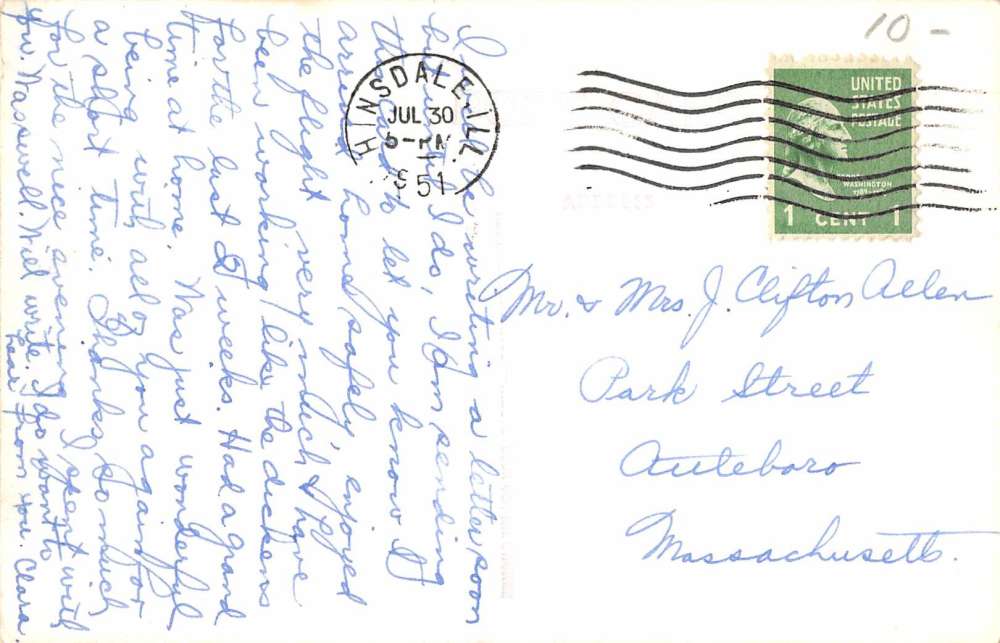 10 -
HINSDALE, ILL.
JUL 30
5-PM
1951
UNITED
STATES
POSTAGE
WASHINGTON
1789-
1 CENT 1
ADDRESS
I will be writing a letter soon
but until I do, I am sending
this card to let you know I
arrived home safely, enjoyed
the flight very much & have
been working like the dickens
for the last 2 weeks. Had a grand
time at home. Was just wonderful
being with all of you again for
a short time. Thanks so much
for the nice evening I spent with
you. Was swell. Will write. I do want to
hear from you. Clara
Mr. & Mrs. J. Clifton Allen
Park Street
Attleboro
Massachusetts.